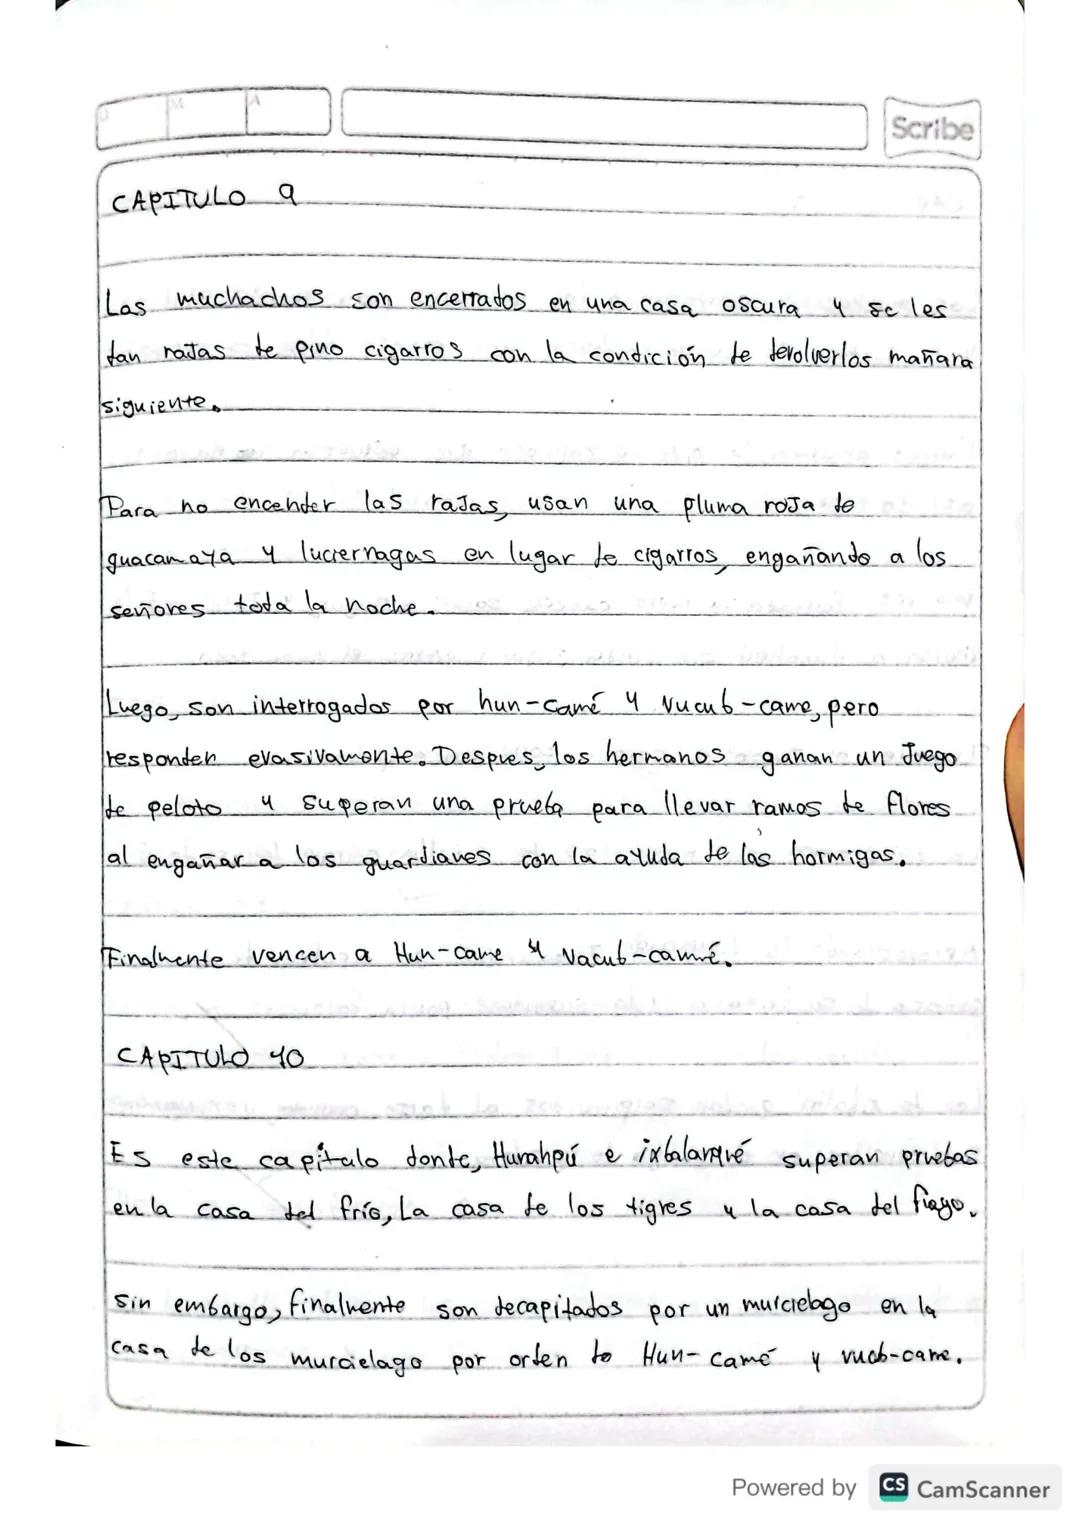 D M A
Scribe
CAPITULO 9
Los muchachos son encerrados en una casa oscura y se les
dan rajas de pino cigarros con la condición de devolverlos mañara
siguiente.
Para no encender las rajas, usan una pluma roja de
guacamaya y luciernagas en lugar de cigarros, engañando a los
señores toda la noche.
Luego, son interrogados por hun-camé y Vucub-came, pero
responden evasivamente. Despues, los hermanos ganan un Juego
de peloto y superan una prueba para llevar ramos de flores
al engañar a los guardianes con la ayuda de las hormigas.
Finalmente vencen a Hun-came y Vacub-camé.
CAPITULO 10
Es este capitulo donde, Hurahpú e ixbalanqué superan pruebas
en la casa del frío, La casa de los tigres y la casa del fuego.
Sin embargo, finalmente son decapitados por un murcielago en la
casa de los murcielago por orden to Hun-camé y vucb-came.
Powered by CS CamScanner